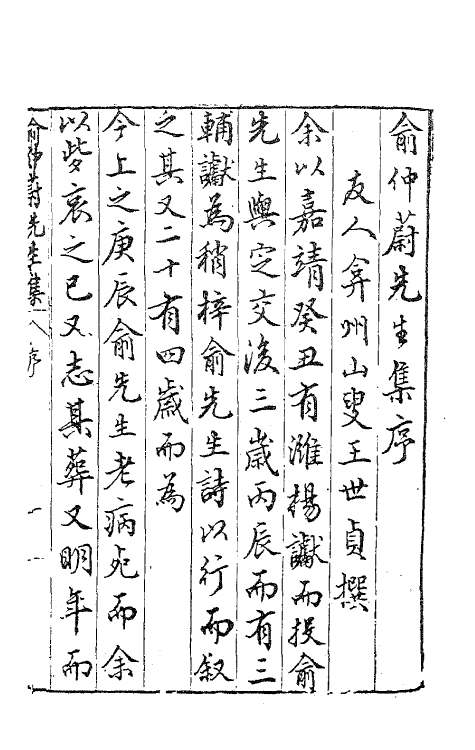 俞仲蔚先生集序
友人弇州山叟王世貞撰
余以嘉靖癸丑有淮楊讞而投俞
先生與定交後三歲丙辰而有三
輔讞為稍梓俞先生詩以行而叙
之其又二十有四歲而為
今上之庚辰俞先生老病死而余
以些哀之已又志其葬又明年而
俞仲蔚先生集 序 一